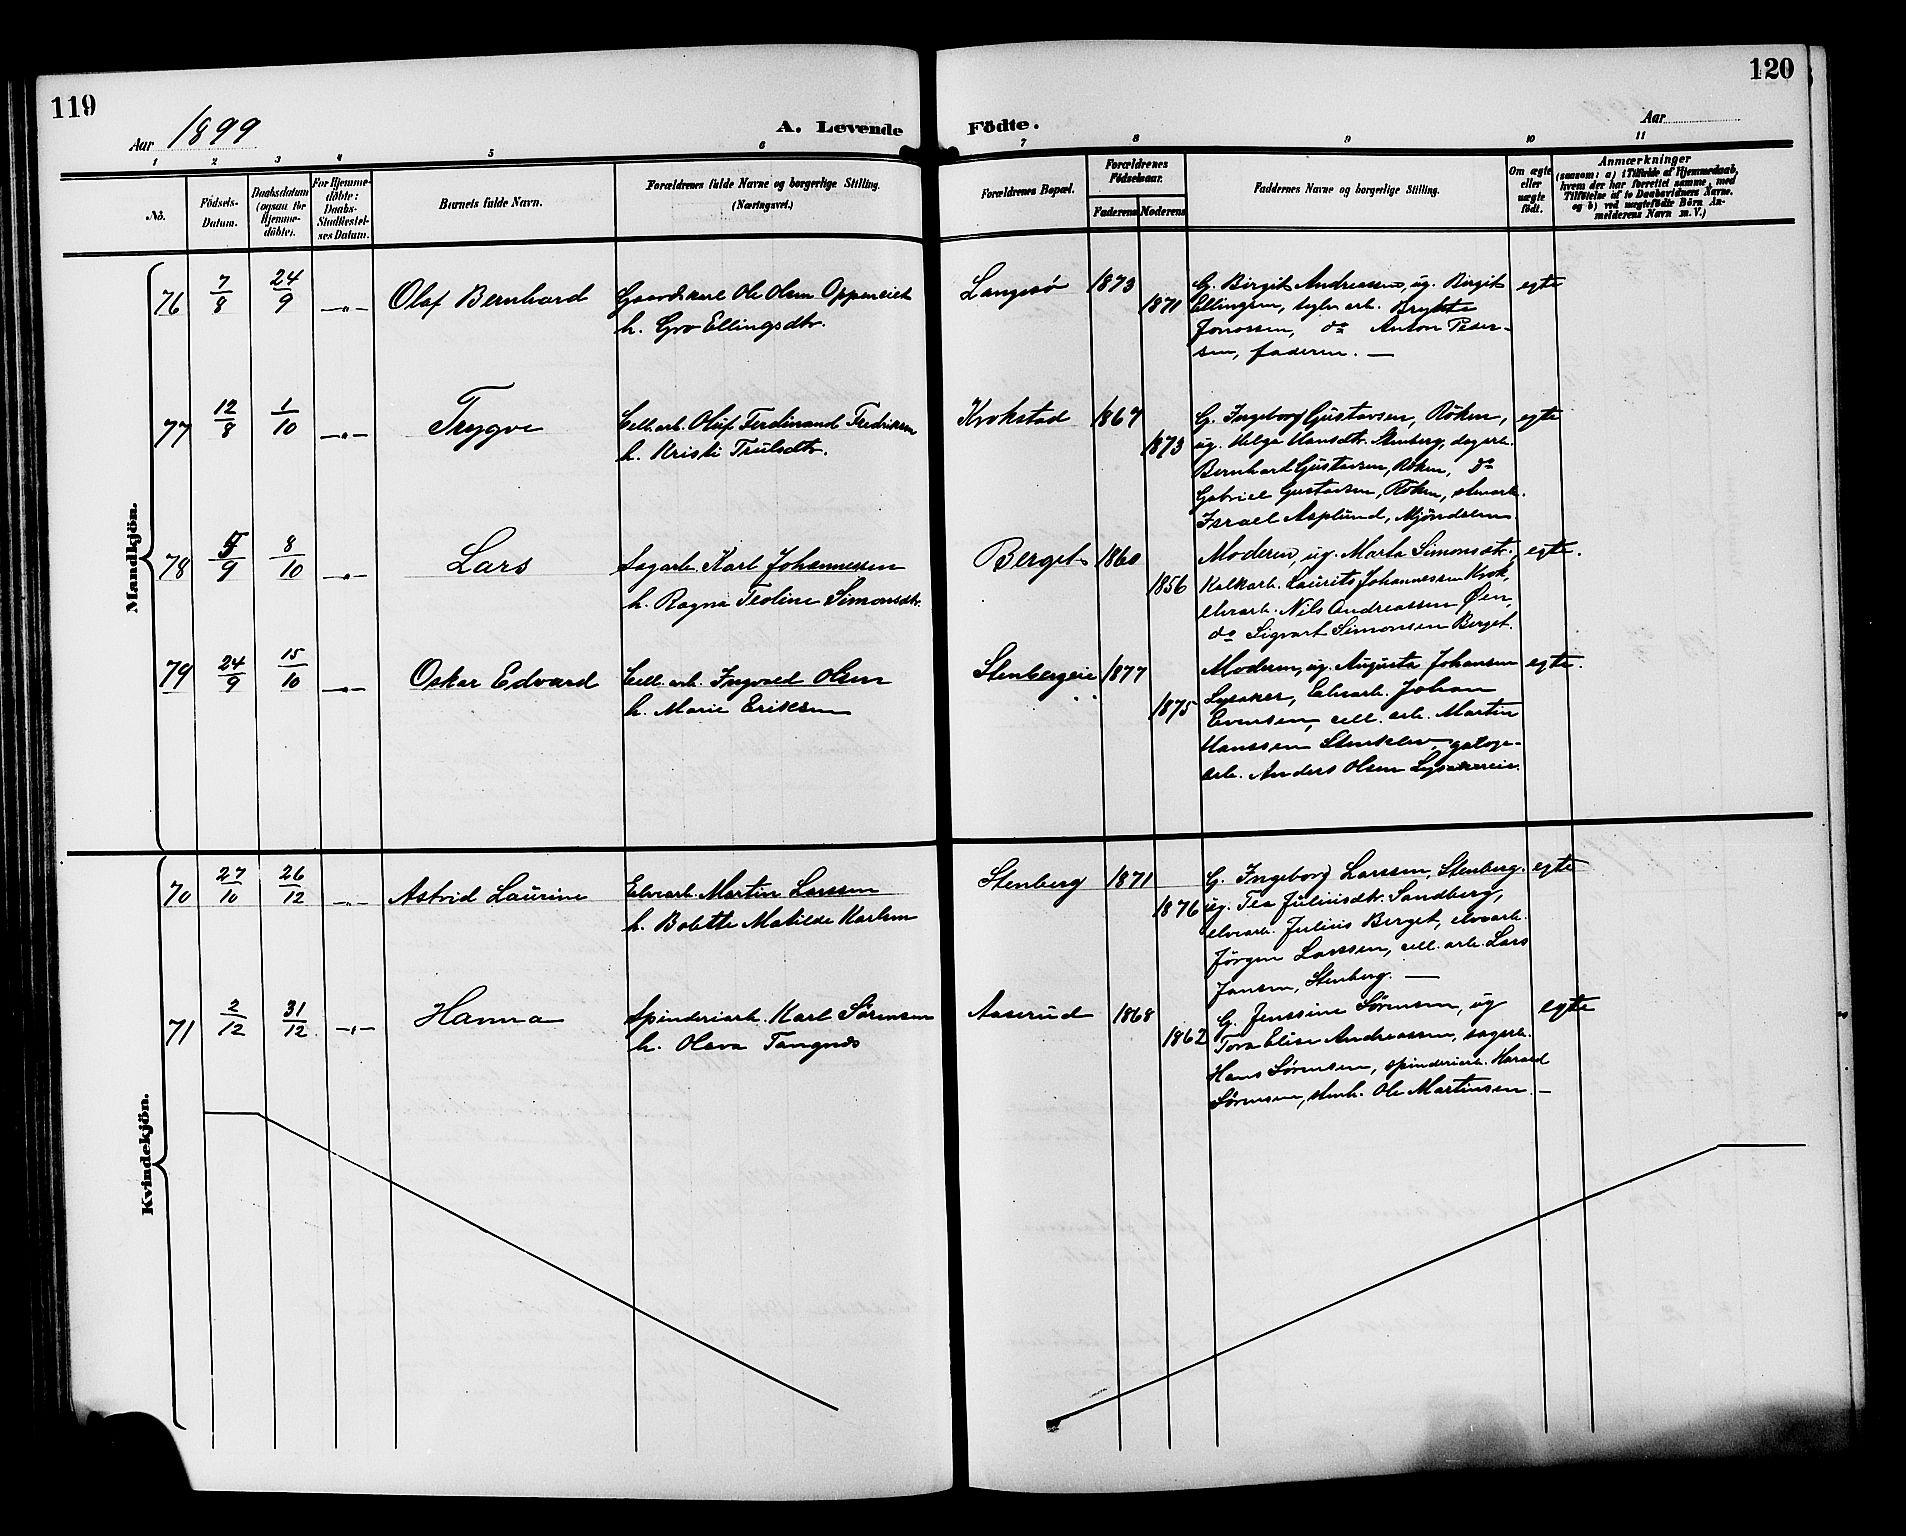 119
120
Aar 1899
A. Levende Födte.
Aar
1 2 3 4 5 6 7 8 9 10 11
No.
Födsels-Datum.
Daabsdatum (ogsaa for Hjemme-döbte).
For Hjemme-döbte: Daabs-Stadfæstel-ses Datum.
Barnets fulde Navn.
Forældrenes fulde Navne og borgerlige Stilling.
(Næringsvei.)
Forældrenes Bopæl.
Forældrenes Födselsaar.
Faderens Moderens
Faddernes Navne og borgerlige Stilling.
Om ægte eller uægte født.
Anmærkninger
(saasom: a) i Tilfælde af Hjemmedaab,
hvem der har forrettet samme, med
Tilföielse af to Daabsvidners Navne,
og b) ved uægtefödte Börn An-
melderens Navn m. V.)
Mandkjön.
76 7/8 24/9 —"— Olaf Bernhard Gaardskarl Ole Olsen Oppeneiet Langesö 1873 G. Birgit Andreassen, ug. Birgit egte
h. Gro Ellingsdtr. 1871 Ellingsen, arb.
Jonassen, do Anton Peder-
sen, faderen. —
77 12/8 1/10 —"— Trygve Cell. arb. Oluf Ferdinand Fredriksen Krokstad 1867 G. Ingeborg Gustavsen, Röken, egte
h. Kristi Trulsdtr. 1873 ug. Helga Hansdtr. Stenberg, dagarb.
Bernhart Gustavsen, Röken, do
Gabriel Gustavsen, Röken, elvearb.
Israel Asplund, Mjöndalen
78 5/9 8/10 —"— Lars Sagarb. Karl Johannessen Berget 1860 Moderen, ug. Marta Simonsdtr. egte.
h. Ragna Teoline Simonsdtr. 1856 Kalkarb. Laurits Johannessen Krok,
elvearb. Nils Andreassen Øen,
do Sigvart Simonsen Berget.
79 24/9 15/10 —"— Oskar Edvard Cell. arb. Ingvald Olsen Stenbergeie 1877 Moderen, ug. Augusta Johansen egte.
h. Marie Eriksen 1875 Lysaker, Elvearb. Johan
Evensen, cell. arb. Martin
Hanssen Stenklev,
arb. Anders Olsen Lysakereie.
Kvindekjön.
70 27/10 26/12 —"— Astrid Laurine Elvearb. Martin Larssen Stenberg 1871 G. Ingeborg Larssen, Stenberg. egte
h. Bolette Matilde Karlsen 1876 ug. Tea Juliusdtr. Sandberg,
elvearb. Julius Berget, elvearb.
Jörgen Larssen, cell. arb. Lars
Jansen, Stenberg. —
71 2/12 31/12 —"— Hanna Spinderiarb. Karl Sörensen Aaserud 1868 G. Jenssine Sörensen, ug egte
h. Olava Tangnæs 1862 Tora Elise Andreassen, sagarb.
Hans Sörensen, spinderiarb. Harald
Sörensen, elvearb. Ole Martinsen. —